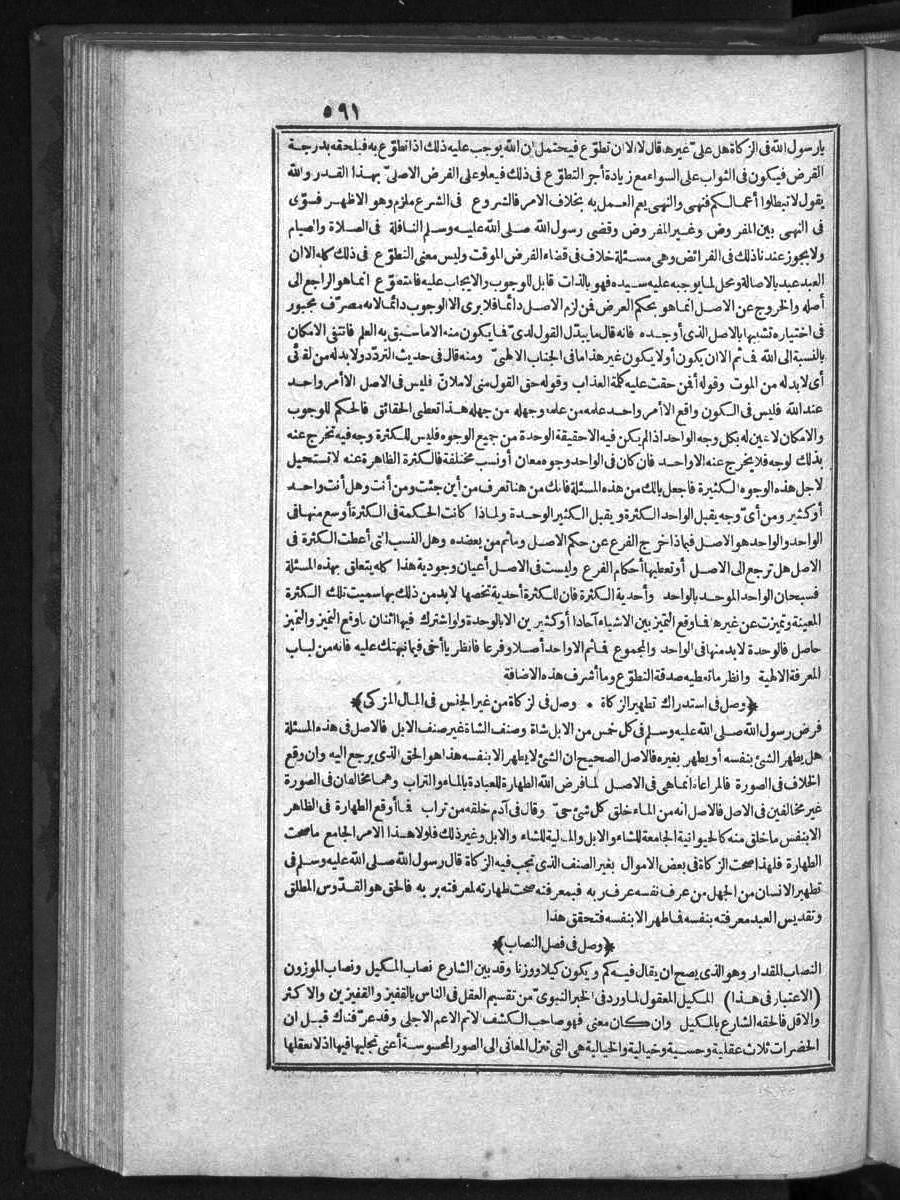 ٥٩١
يارسول الله فى الزكاة هل علىّ غيرها قال لا الا ان تطوّع فيحتمل ان الله يوجب عليه ذلك اذا تطوّع به فيلحقه بدرجة
الفرض فيكون فى الثواب على السواء مع زيادة أجر التطوّع فى ذلك فيعلو على الفرض الاصلىّ بهذا القدر والله
يقول لا تبطلوا أعمالكم فنهى والنهى يعم العمل به بخلاف الامر فالشروع فى الشرع ملزم وهو الاظهر فسوّى
فى النهى بين المفروض وغير المفروض وقضى رسول الله صلى الله عليه وسلم النافلة فى الصلاة والصيام
ولا يجوز عندنا ذلك فى الفرائض وهى مسئلة خلاف فى قضاء الفرض الموقت وليس معنى التطوّع فى ذلك كله الا ان
العبد عبد بالاصالة ومحل لما يوجبه عليه سيده فهو بالذات قابل للوجوب والايجاب عليه فالمتطوّع انما هو الراجع الى
أصله والخروج عن الاصل انما هو بحكم العرض فمن لزم الاصل دائما فلا يرى الا الوجوب دائما لانه مصرّف مجبور
فى اختياره تشبها بالاصل الذى أوجده فانه قال ما يبدّل القول لدىّ فما يكون منه الا ما سبق به العلم فانتفى الامكان
بالنسبة الى الله فما ثم الا ان يكون أو لا يكون غير هذا ما فى الجناب الالهىّ ومنه قال فى حديث التردّد ولا بد له من لقائى
أى لا بد له من الموت وقوله أفمن حقت عليه كلمة العذاب وقوله حق القول منى لاملأن فليس فى الاصل الا أمر واحد
عند الله فليس فى الكون واقع الا أمر واحد علمه من علمه وجهله من جهله هذا تعطى الحقائق فالحكم للوجوب
والامكان لا عين له بكل وجه الواحد اذا لم يكن فيه الا حقيقة الوحدة من جميع الوجوه فليس للكثرة وجه فيه تخرج عنه
بذلك لوجه فلا يخرج عنه الا واحد فان كان فى الواحد وجوه معان أو نسب مختلفة فالكثرة الظاهرة عنه لا تستحيل
لاجل هذه الوجوه الكثيرة فاجعل بالك من هذه المسئلة فانك من هنا تعرف من أين جئت ومن أنت وهل أنت واحد
أو كثير ومن أىّ وجه يقبل الواحد الكثرة ويقبل الكثير الوحدة ولماذا كانت الحكمة فى الكثرة أوسع منها فى
الواحد والواحد هو الاصل فبماذا خرج الفرع عن حكم الاصل وما ثم من يعضده وهل النسب التى أعطت الكثرة فى
الاصل هل ترجع الى الاصل أو تعطيها أحكام الفرع وليست فى الاصل أعيان وجودية هذا كله يتعلق بهذه المسئلة
فسبحان الواحد الموحد بالواحد وأحدية الكثرة فان للكثرة أحدية تخصها لا بد من ذلك بها سميت تلك الكثرة
المعينة وتميزت عن غيرها فما وقع التميز بين الاشياء آحادا أو كثيرين الا بالوحدة ولو اشترك فيها اثنان ما وقع التميز والتميز
حاصل فالوحدة لا بد منها فى الواحد والمجموع فما ثم الا واحد أصلا وفرعا فانظر يا أخى فيما نبهتك عليه فانه من لباب
المعرفة الالهية وانظر ما تعطيه صدقة التطوّع وما أشرف هذه الاضافة
﴿وصل فى استدراك تطهير الزكاة * وصل فى زكاة من غير الجنس فى المال المزكى﴾
فرض رسول الله صلى الله عليه وسلم فى كل خمس من الابل شاة وصنف الشاة غير صنف الابل فالاصل فى هذه المسئلة
هل يطهر الشئ بنفسه أو يطهر بغيره فالاصل الصحيح ان الشئ لا يطهر الا بنفسه هذا هو الحق الذى يرجع اليه وان وقع
الخلاف فى الصورة فالمراعاة انما هى فى الاصل لما فرض الله الطهارة للعبادة بالماء والتراب وهما مخالفان فى الصورة
غير مخالفين فى الاصل فالاصل انه من الماء خلق كل شئ حىّ وقال فى آدم خلقه من تراب فما أوقع الطهارة فى الظاهر
الا بنفس ما خلق منه كالحيوانية الجامعة للشاء والابل والمالية للشاء والابل وغير ذلك فلولا هذا الامر الجامع ما صحت
الطهارة فلهذا صحت الزكاة فى بعض الاموال بغير الصنف الذى تجب فيه الزكاة قال رسول الله صلى الله عليه وسلم فى
تطهير الانسان من الجهل من عرف نفسه عرف ربه فبمعرفته صحت طهارته لمعرفته بربه فالحق هو القدّوس المطلق
وتقديس العبد معرفته بنفسه فما طهر الا بنفسه فتحقق هذا
﴿وصل فى فصل النصاب﴾
النصاب المقدار وهو الذى يصح ان يقال فيه كم ويكون كيلا ووزنا وقد بين الشارع نصاب المكيل ونصاب الموزون
(الاعتبار فى هذا) المكيل المعقول لما ورد فى الخبر النبوىّ من تقسيم العقل فى الناس بالقفيز والقفيزين والاكثر
والاقل فالحقه الشارع بالمكيل وان كان معنى فهو صاحب الكشف لاتم الاعم الاجلى وقد عرّفناك قبل ان
الحضرات ثلاث عقلية وحسية وخيالية والخيالية هى التى تنزل المعانى الى الصور المحسوسة أعنى تجليها فيها اذ لا نعقلها